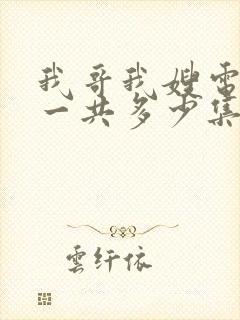 我哥我嫂電
一共多少集
雲纤依